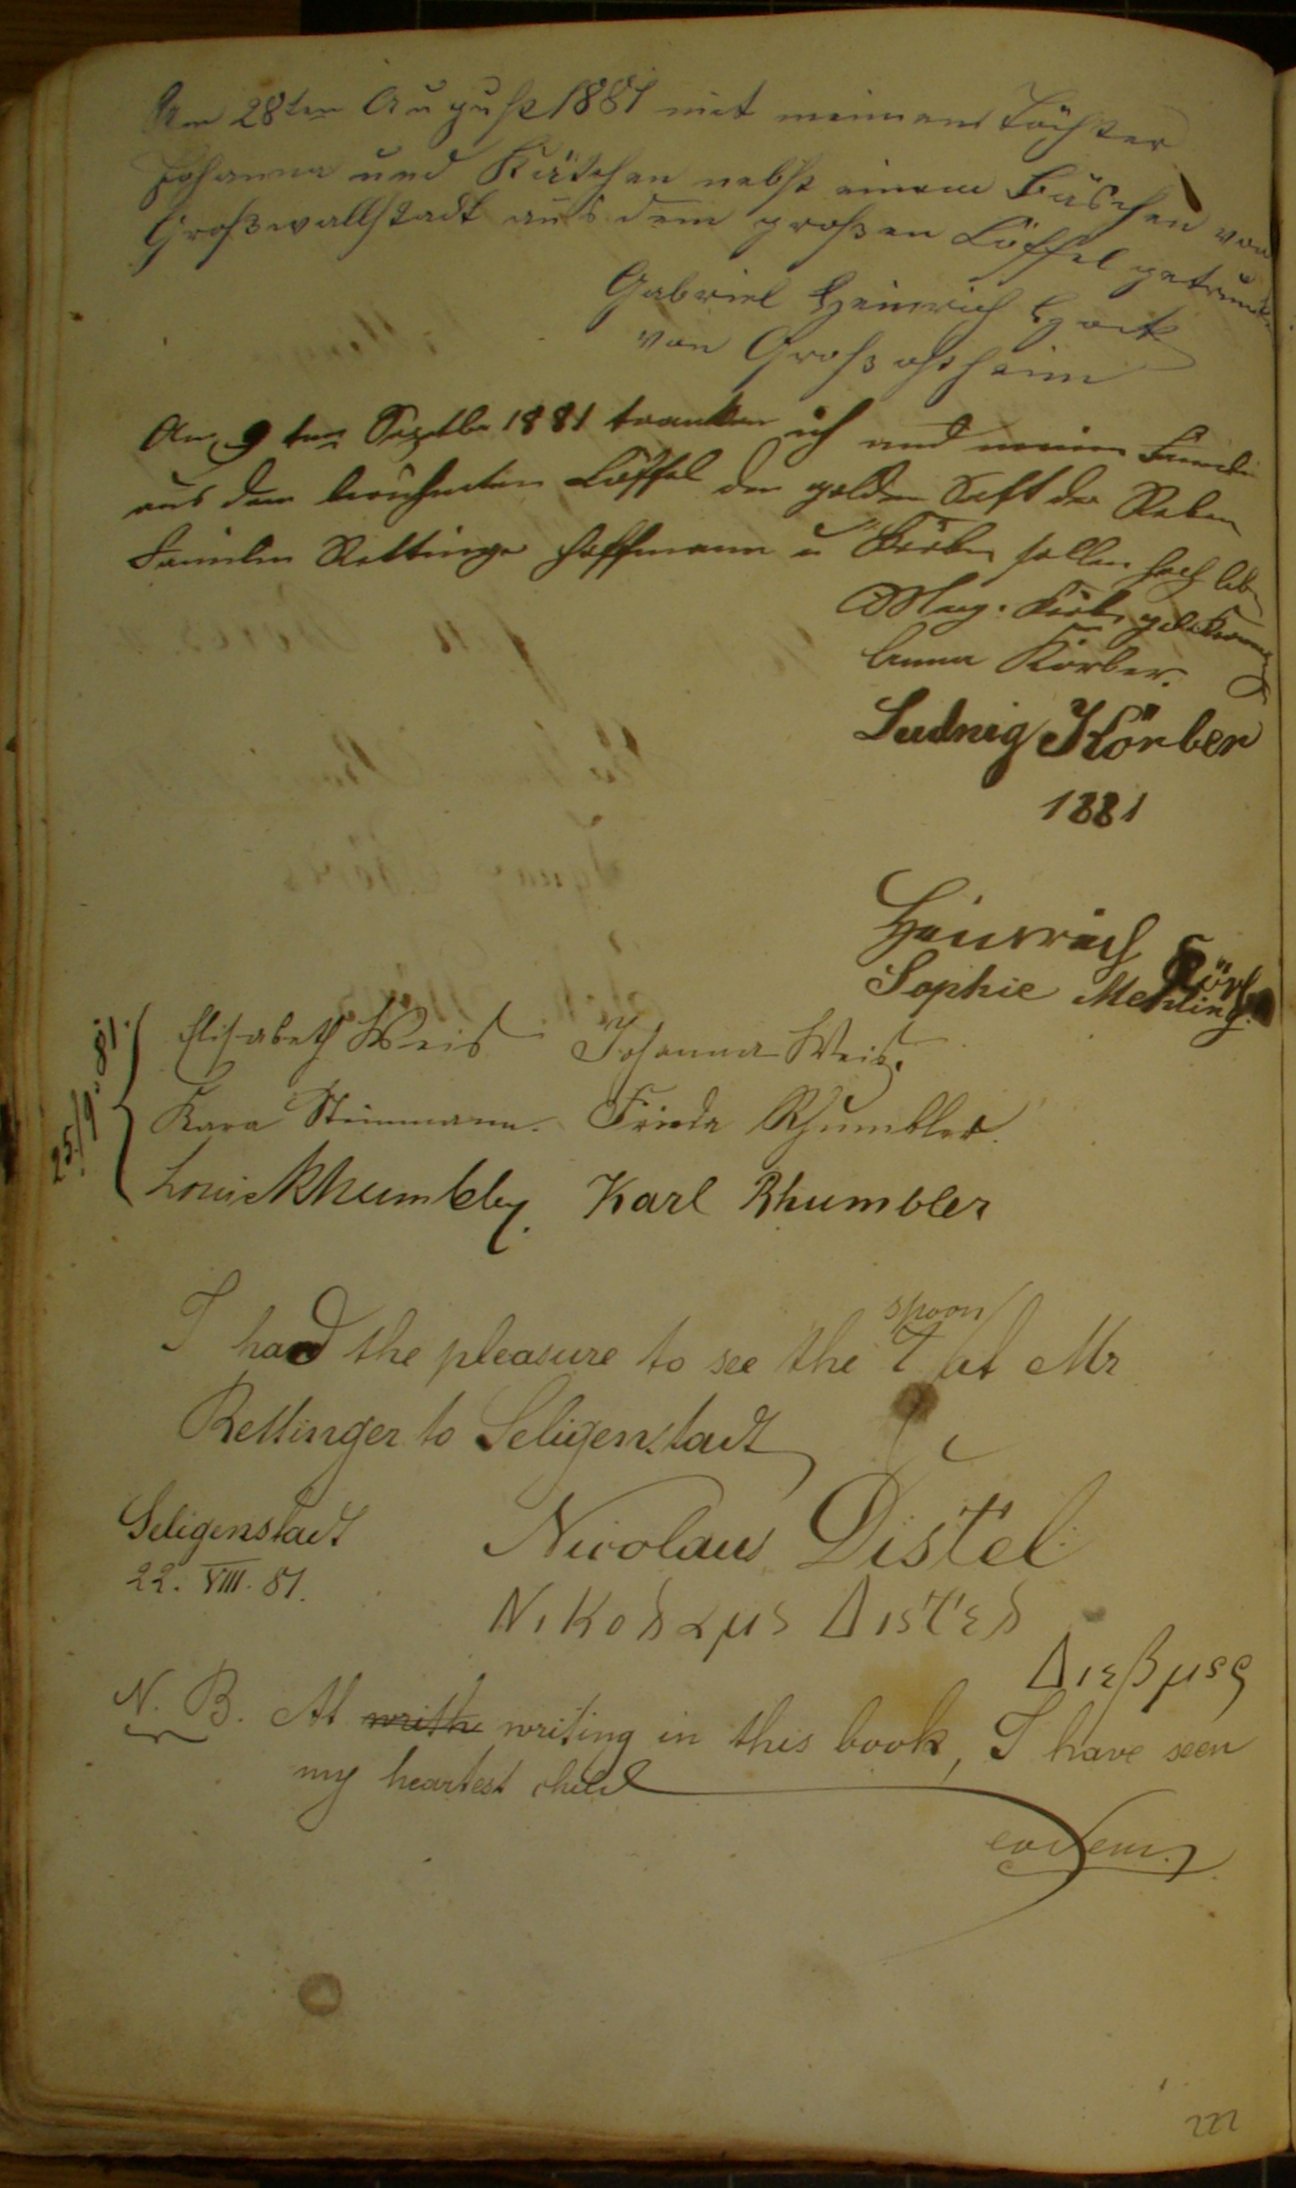 Am 28ten August 1881 mit meinen Töchter
Johanna und Kätchen nebst einem Bäschen von
Großwallstadt aus dem großen Löffel getrunken
Gabriel Heinrich Hock
von Großostheim
Am 9ten Septbr 1881 tranken ich und meine Familie
aus dem berühmten Löffel den golden Saft der Reben
Familen Rettinger Hoffmann u Körber sollen hoch leben
Mag. Körber geb.
Anna Körber.
Ludwig Körber
1881
Heinrich Körber
Sophie Mehling.
25/9. 81.
Elisabeth Weis Johanna Weis.
Kara Steinmann. Frieda Rhumbler.
Louis Rhumbler. Karl Rhumbler
I had the pleasure to see the spoon at Mr
Rettinger to Seligenstadt
Seligenstadt Nicolaus Distel
22. VIII. 81.
Νικοδαμς Διστεδ
Διεβμςς
N. B. At writh writing in this book, I have seen
my heartest child
eodem.
222